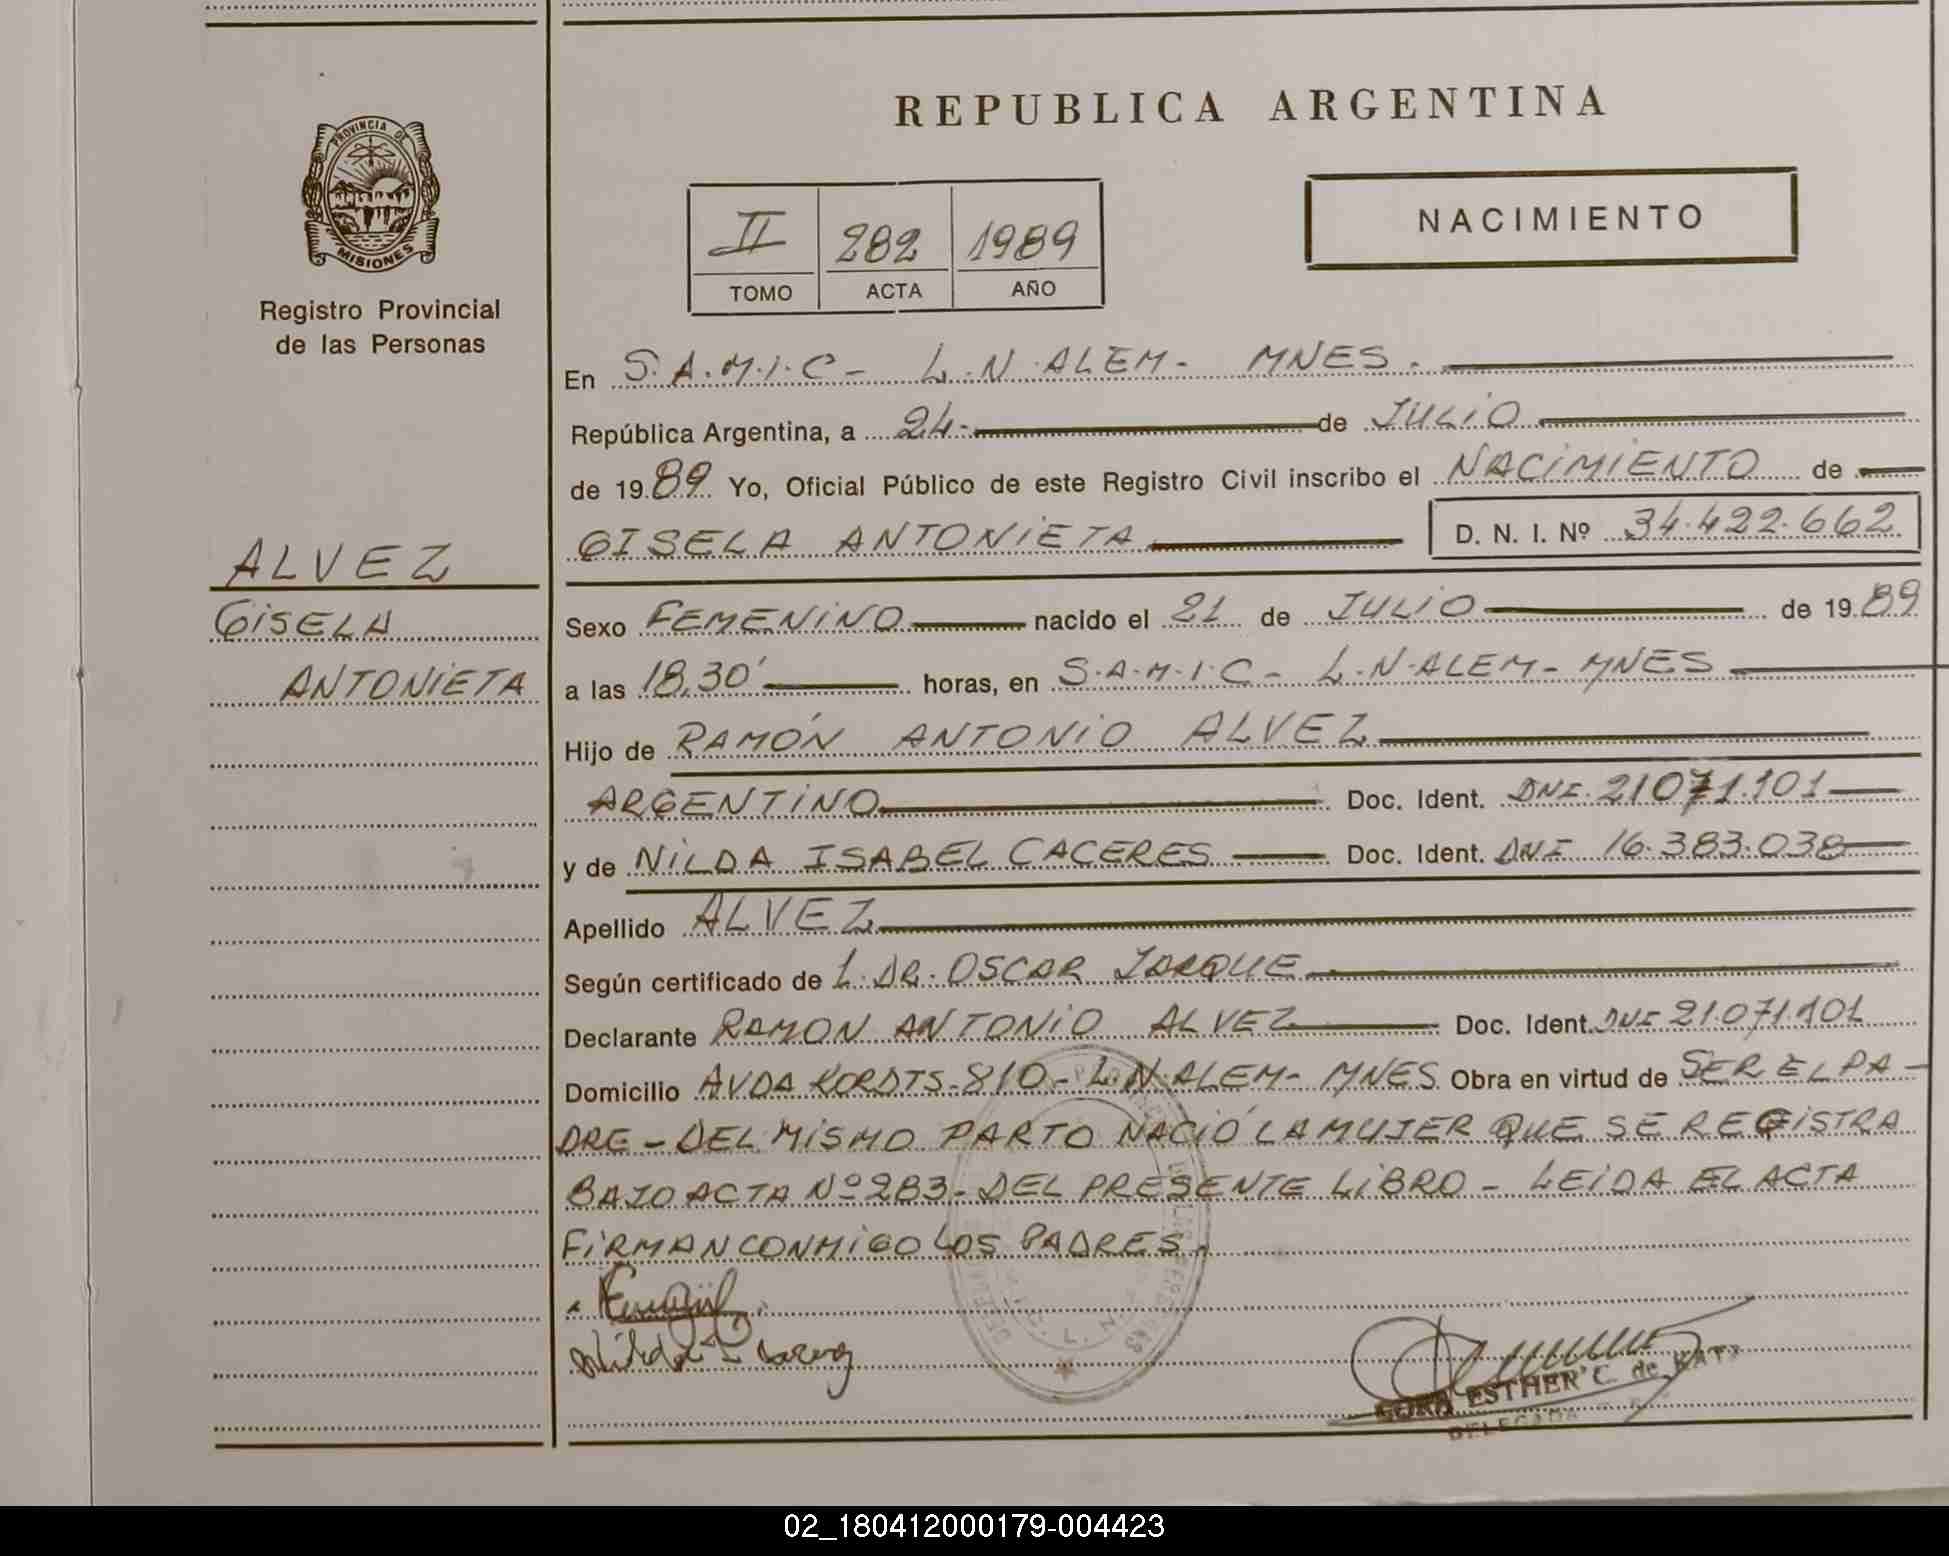 REPUBLICA ARGENTINA
PROVINCIA DE
MISIONES
Registro Provincial
de las Personas
II 282 1989
TOMO ACTA AÑO
NACIMIENTO
En S.A.M.I.C - L.N.ALEM - MNES.
República Argentina, a 24- de JULIO
de 1989 Yo, Oficial Público de este Registro Civil inscribo el NACIMIENTO de
GISELA ANTONIETA D. N. I. Nº 34.422.662
ALVEZ
GISELA
ANTONIETA
Sexo FEMENINO nacido el 21 de JULIO de 1989
a las 18,30' horas, en S.A.M.I.C - L.N.ALEM - MNES
Hijo de RAMÓN ANTONIO ALVEZ
ARGENTINO Doc. Ident. DNI. 21071.101
y de NILDA ISABEL CACERES Doc. Ident. DNI 16.383.038
Apellido ALVEZ
Según certificado de L. DR. OSCAR JARQUE
Declarante RAMON ANTONIO ALVEZ Doc. Ident. DNI 21.071.101
Domicilio AVDA KORDTS-810- L.N.ALEM- MNES Obra en virtud de SER EL PA-
DRE - DEL MISMO PARTO NACIÓ LA MUJER QUE SE REGISTRA
BAJO ACTA Nº 283- DEL PRESENTE LIBRO - LEIDA EL ACTA
FIRMAN CONMIGO LOS PADRES.
ESTHER C. de
DELEGADA
02_180412000179-004423